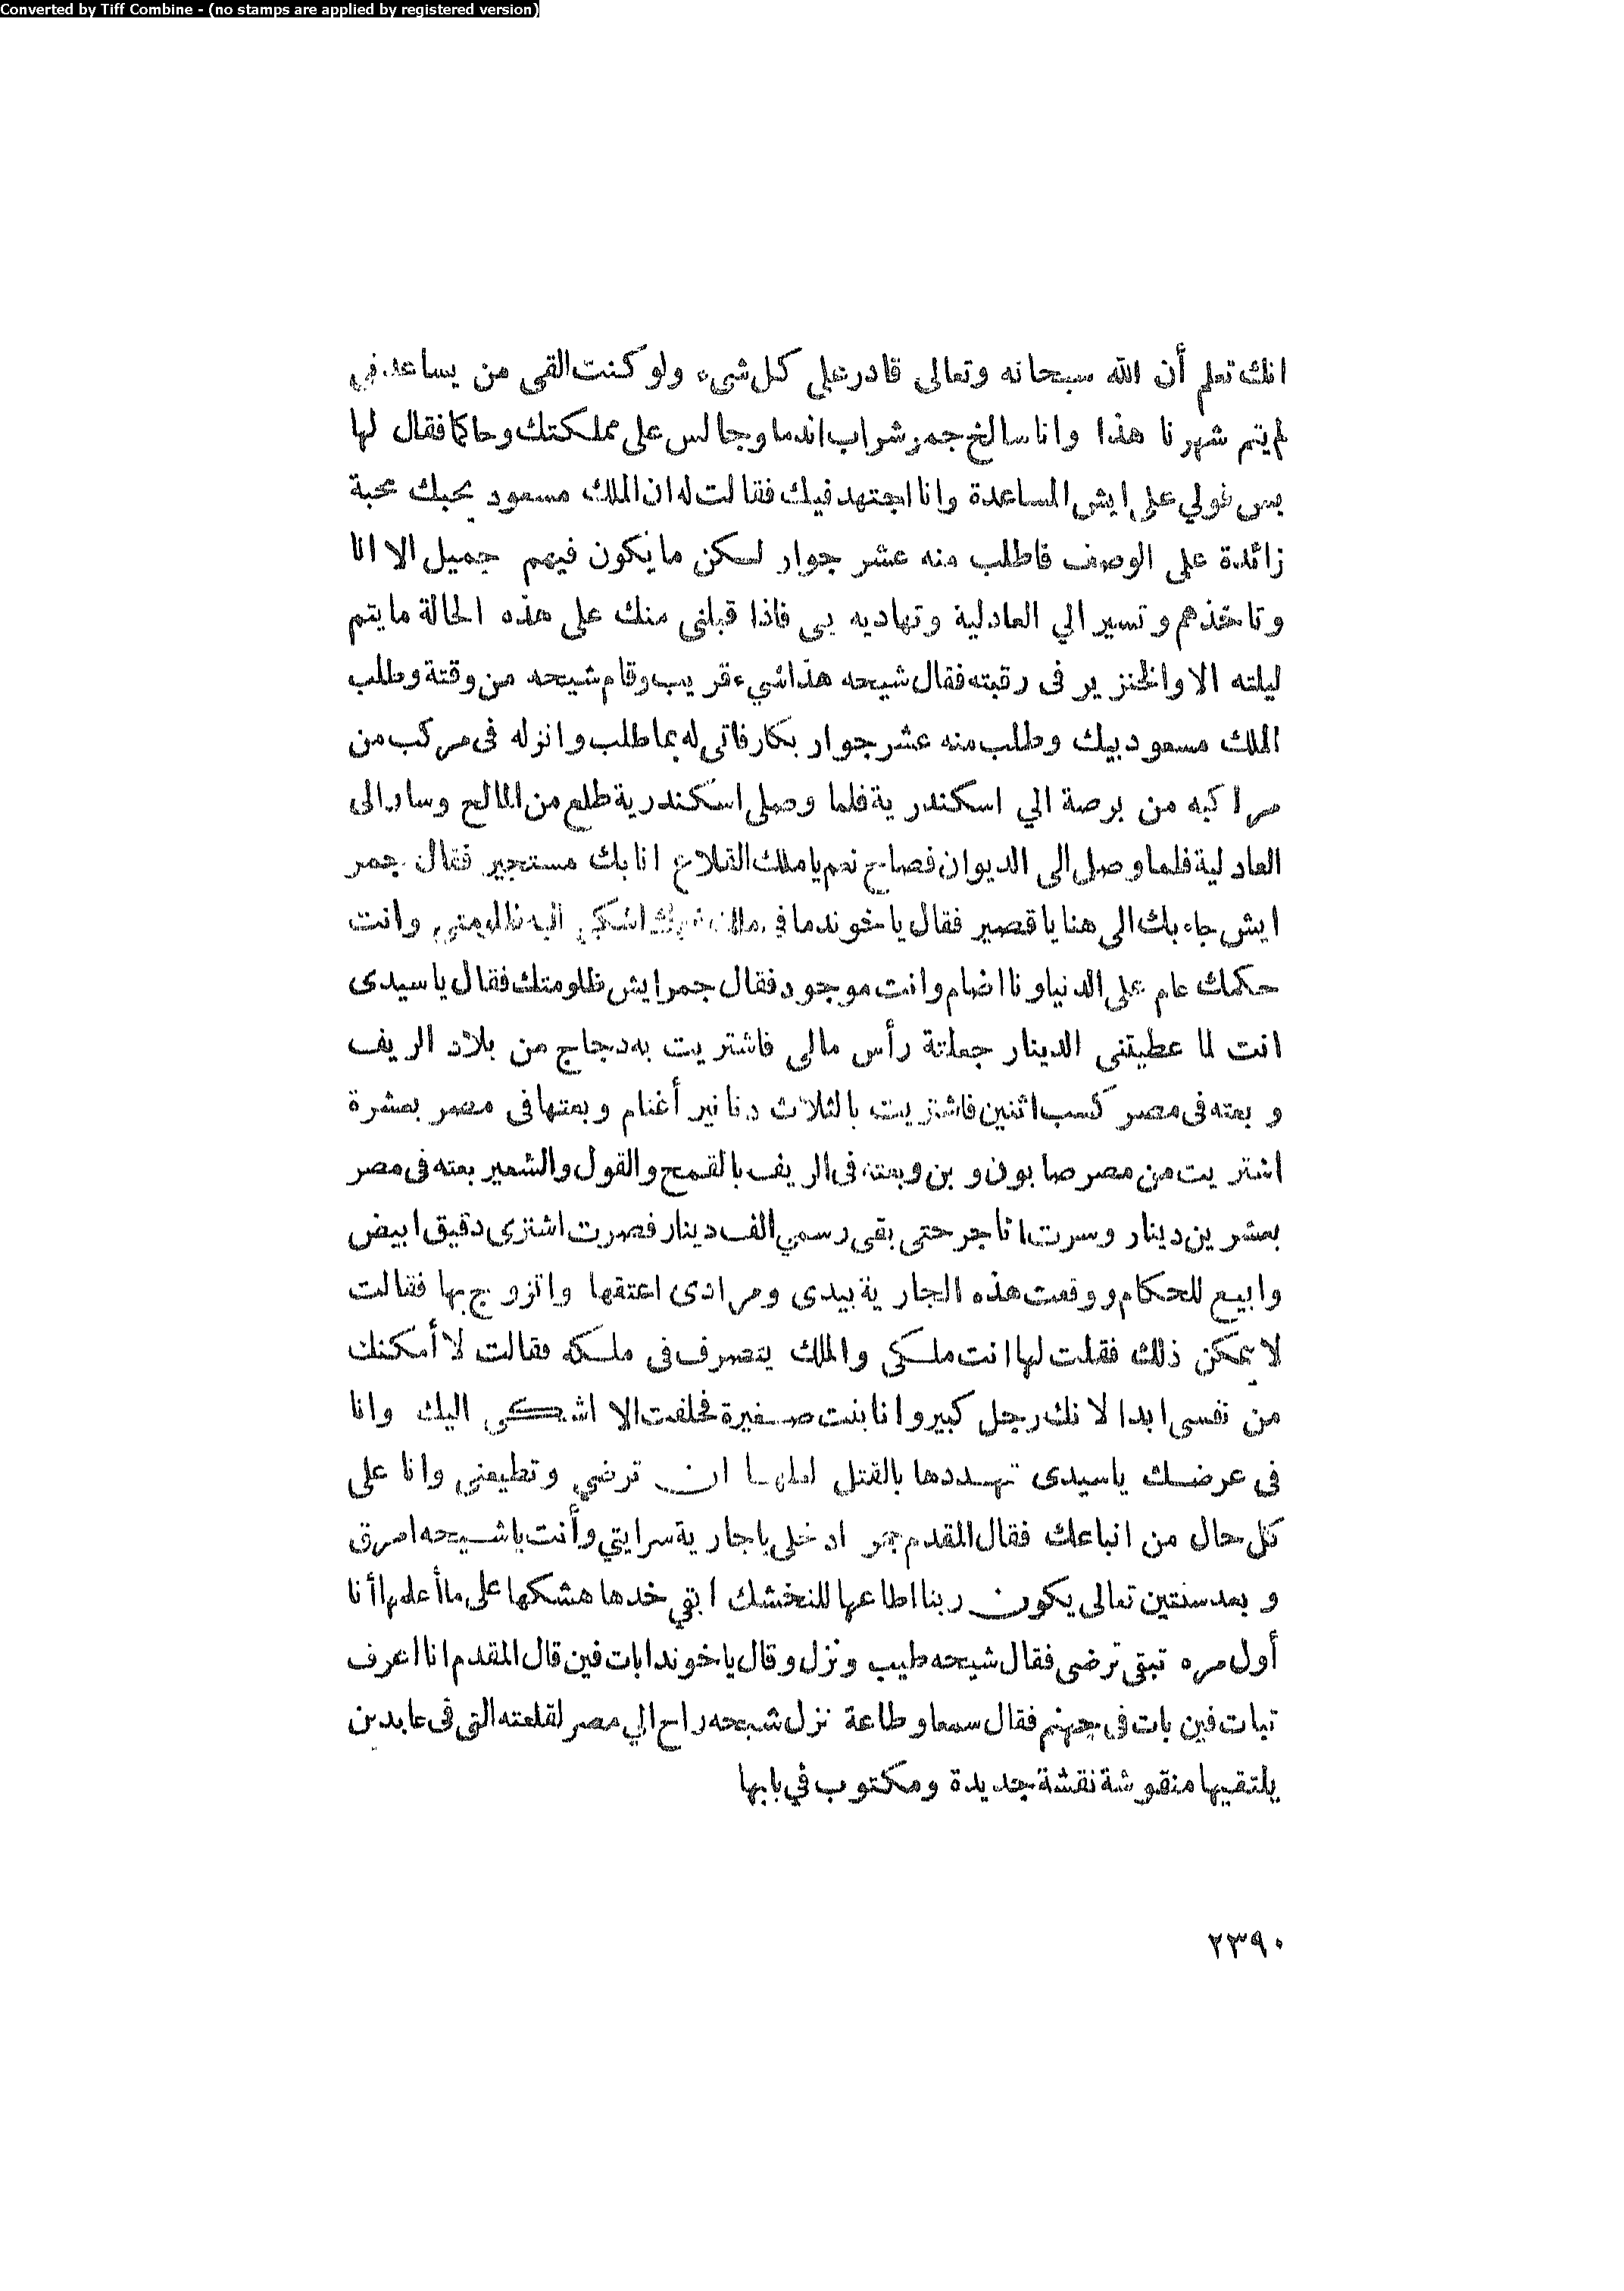 Converted by Tiff Combine - (no stamps are applied by registered version)
انك تعلم أن الله سبحانه وتعالى قادر على كل شىء ولو كنت القى من يساعدني
لم يتم شهرنا هذا وانا سالخ جمر شراب اندما وجالس على مملكتك وحاكما فقال لها
بس قولي على ايش المساعدة وانا اجتهد فيك فقالت له ان الملك مسعود يحبك محبة
زائدة على الوصف فاطلب منه عشر جوار لسكن ما يكون فيهم جميل الا انا
وتاخذهم وتسير الي العادلية وتهاديه بي فاذا قبلنى منك على هذه الحالة ما يتم
ليلته الا والخنزير فى رقبته فقال شيحه هذا شيء قريب وقام شيحه من وقتة وطلب
الملك مسعود بيك وطلب منه عشر جوار بكار فاتى له بما طلب وانزله فى مركب من
مراكبه من برصة الي اسكندرية فلما وصل اسكندرية طلع من المالح وسار الى
العادلية فلما وصل الى الديوان فصاح نعم يا ملك القلاع انا بك مستجير فقال جمر
ايش جاء بك الى هنا يا قصير فقال يا خوند ما في ملك غيرك اشكي اليه ظلامتي وانت
حكمك عام على الدنيا ونا انضام وانت موجود فقال جمر ايش ظلومتك فقال يا سيدى
انت لما عطيتنى الدينار جعلتة رأس مالى فاشتريت به دجاج من بلاد الريف
وبعته فى مصر كسب اثنين فاشتريت بالثلاث دنانير أغنام وبعتها فى مصر بعشرة
اشتريت من مصر صابون وبن وبعته فى الريف بالقمح والقول والشعير بعته فى مصر
بعشرين دينار وسرت اتاجر حتى بقى رسمي الف دينار فصرت اشترى دقيق ابيض
وابيع للحكام ووقعت هذه الجارية بيدى ومرادى اعتقها واتزوج بها فقالت
لا يمكن ذلك فقلت لها انت ملكى والملك يتصرف فى ملكه فقالت لا أمكنك
من نفسى ابدا لانك رجل كبير وانا بنت صغيرة فحلفت الا اشكى اليك وانا
فى عرضك يا سيدى تهددها بالقتل لعلها ان ترضي وتطيعنى وانا على
كل حال من اتباعك فقال المقدم جمر ادخلى يا جارية سرايتي وأنت يا شيحه اسرق
وبعد سنتين تعالى يكون ربنا اطاعها للنخشك ابقي خدها هشكها على ما أعلمها أنا
أول مره تبقى ترضى فقال شيحه طيب ونزل وقال يا خوند ابات فين قال المقدم انا اعرف
تبات فين بات فى جهنم فقال سمعا وطاعة نزل شيحه راح الي مصر لقلعته التى فى عابدين
يلتقيها منقوشة نقشة جديدة ومكتوب في بابها
٢٣٩٠